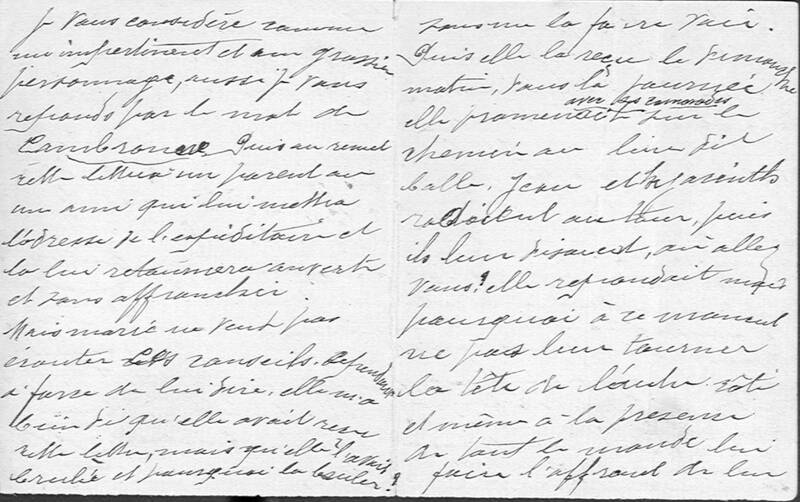 Je vous considère comme
un impertinent et un grossier
personnage, aussi je vous
reponds par le mot de
Cambronne. Puis au reçu
cette lettre a un parent ou
un ami qui lui mettra
l'adresse de l'expéditeur et
la lui retournera ouverte
et sans affranchir.
Mais marie ne veut pas
ecouter ces conseils. Cependant
a force de lui dire, elle m'a
bien di qu'elle avait reçu
cette lettre, mais qu'elle l'avait
brulée et pourquoi la bruler?
sans me la faire voir.
Puis elle la reçu le dimanche
matin, dans la journée
elle promenait avec ses camarades sur le
chemin au lieu dit
balle. Jean et hyacinthe
rodaient autour, puis
ils leur disaient, où allez
vous? elle repondait mais
pourquoi à ce moment
ne pas leur tourner
la tête de l'autre côté
et même à la presence
de tout le monde lui
faire l'affront de leur